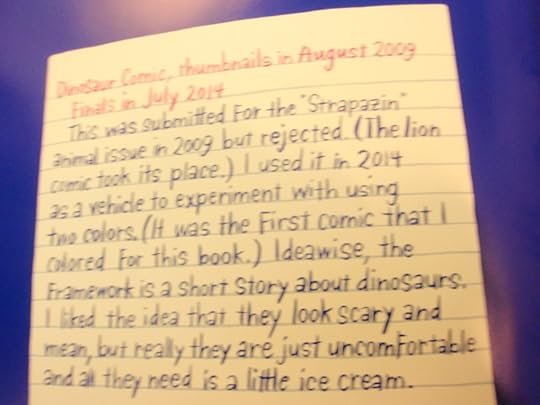 Dinosaur Comic, thumbnails in August 2009
Finals in July 2014
This was submitted For the "Strapazin"
animal issue in 2009 but rejected. (The lion
comic took its place.) I used it in 2014
as a vehicle to experiment with using
two colors. (It was the First comic that I
colored For this book.) Ideawise, the
Framework is a short Story about dinosaurs.
I liked the idea that they look scary and
mean, but really they are just uncomfortable
and all they need is a little ice cream.